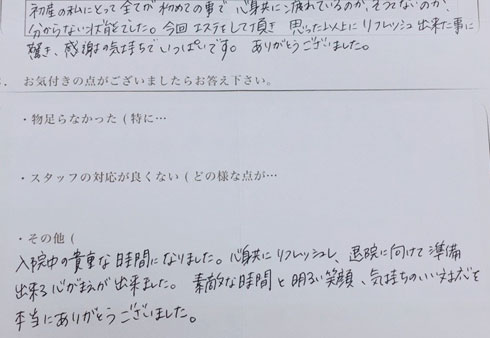 初産の私にとって全てが初めての事で心身共に疲れているのか、そうでないのか、
分からない状態でした。今回エステをして頂き思った以上にリフレッシュ出来た事に
驚き、感謝の気持ちでいっぱいです。ありがとうございます。
. お気付きの点がございましたらお答え下さい。
・物足らなかった (特に…
・スタッフの対応が良くない (どの様な点が…
・その他 (
入院中の貴重な時間になりました。心身共にリフレッシュし、退院に向けて準備
出来る心がまえが出来ました。素敵な時間と明るい笑顔、気持ちのいい対応を
本当にありがとうございました。